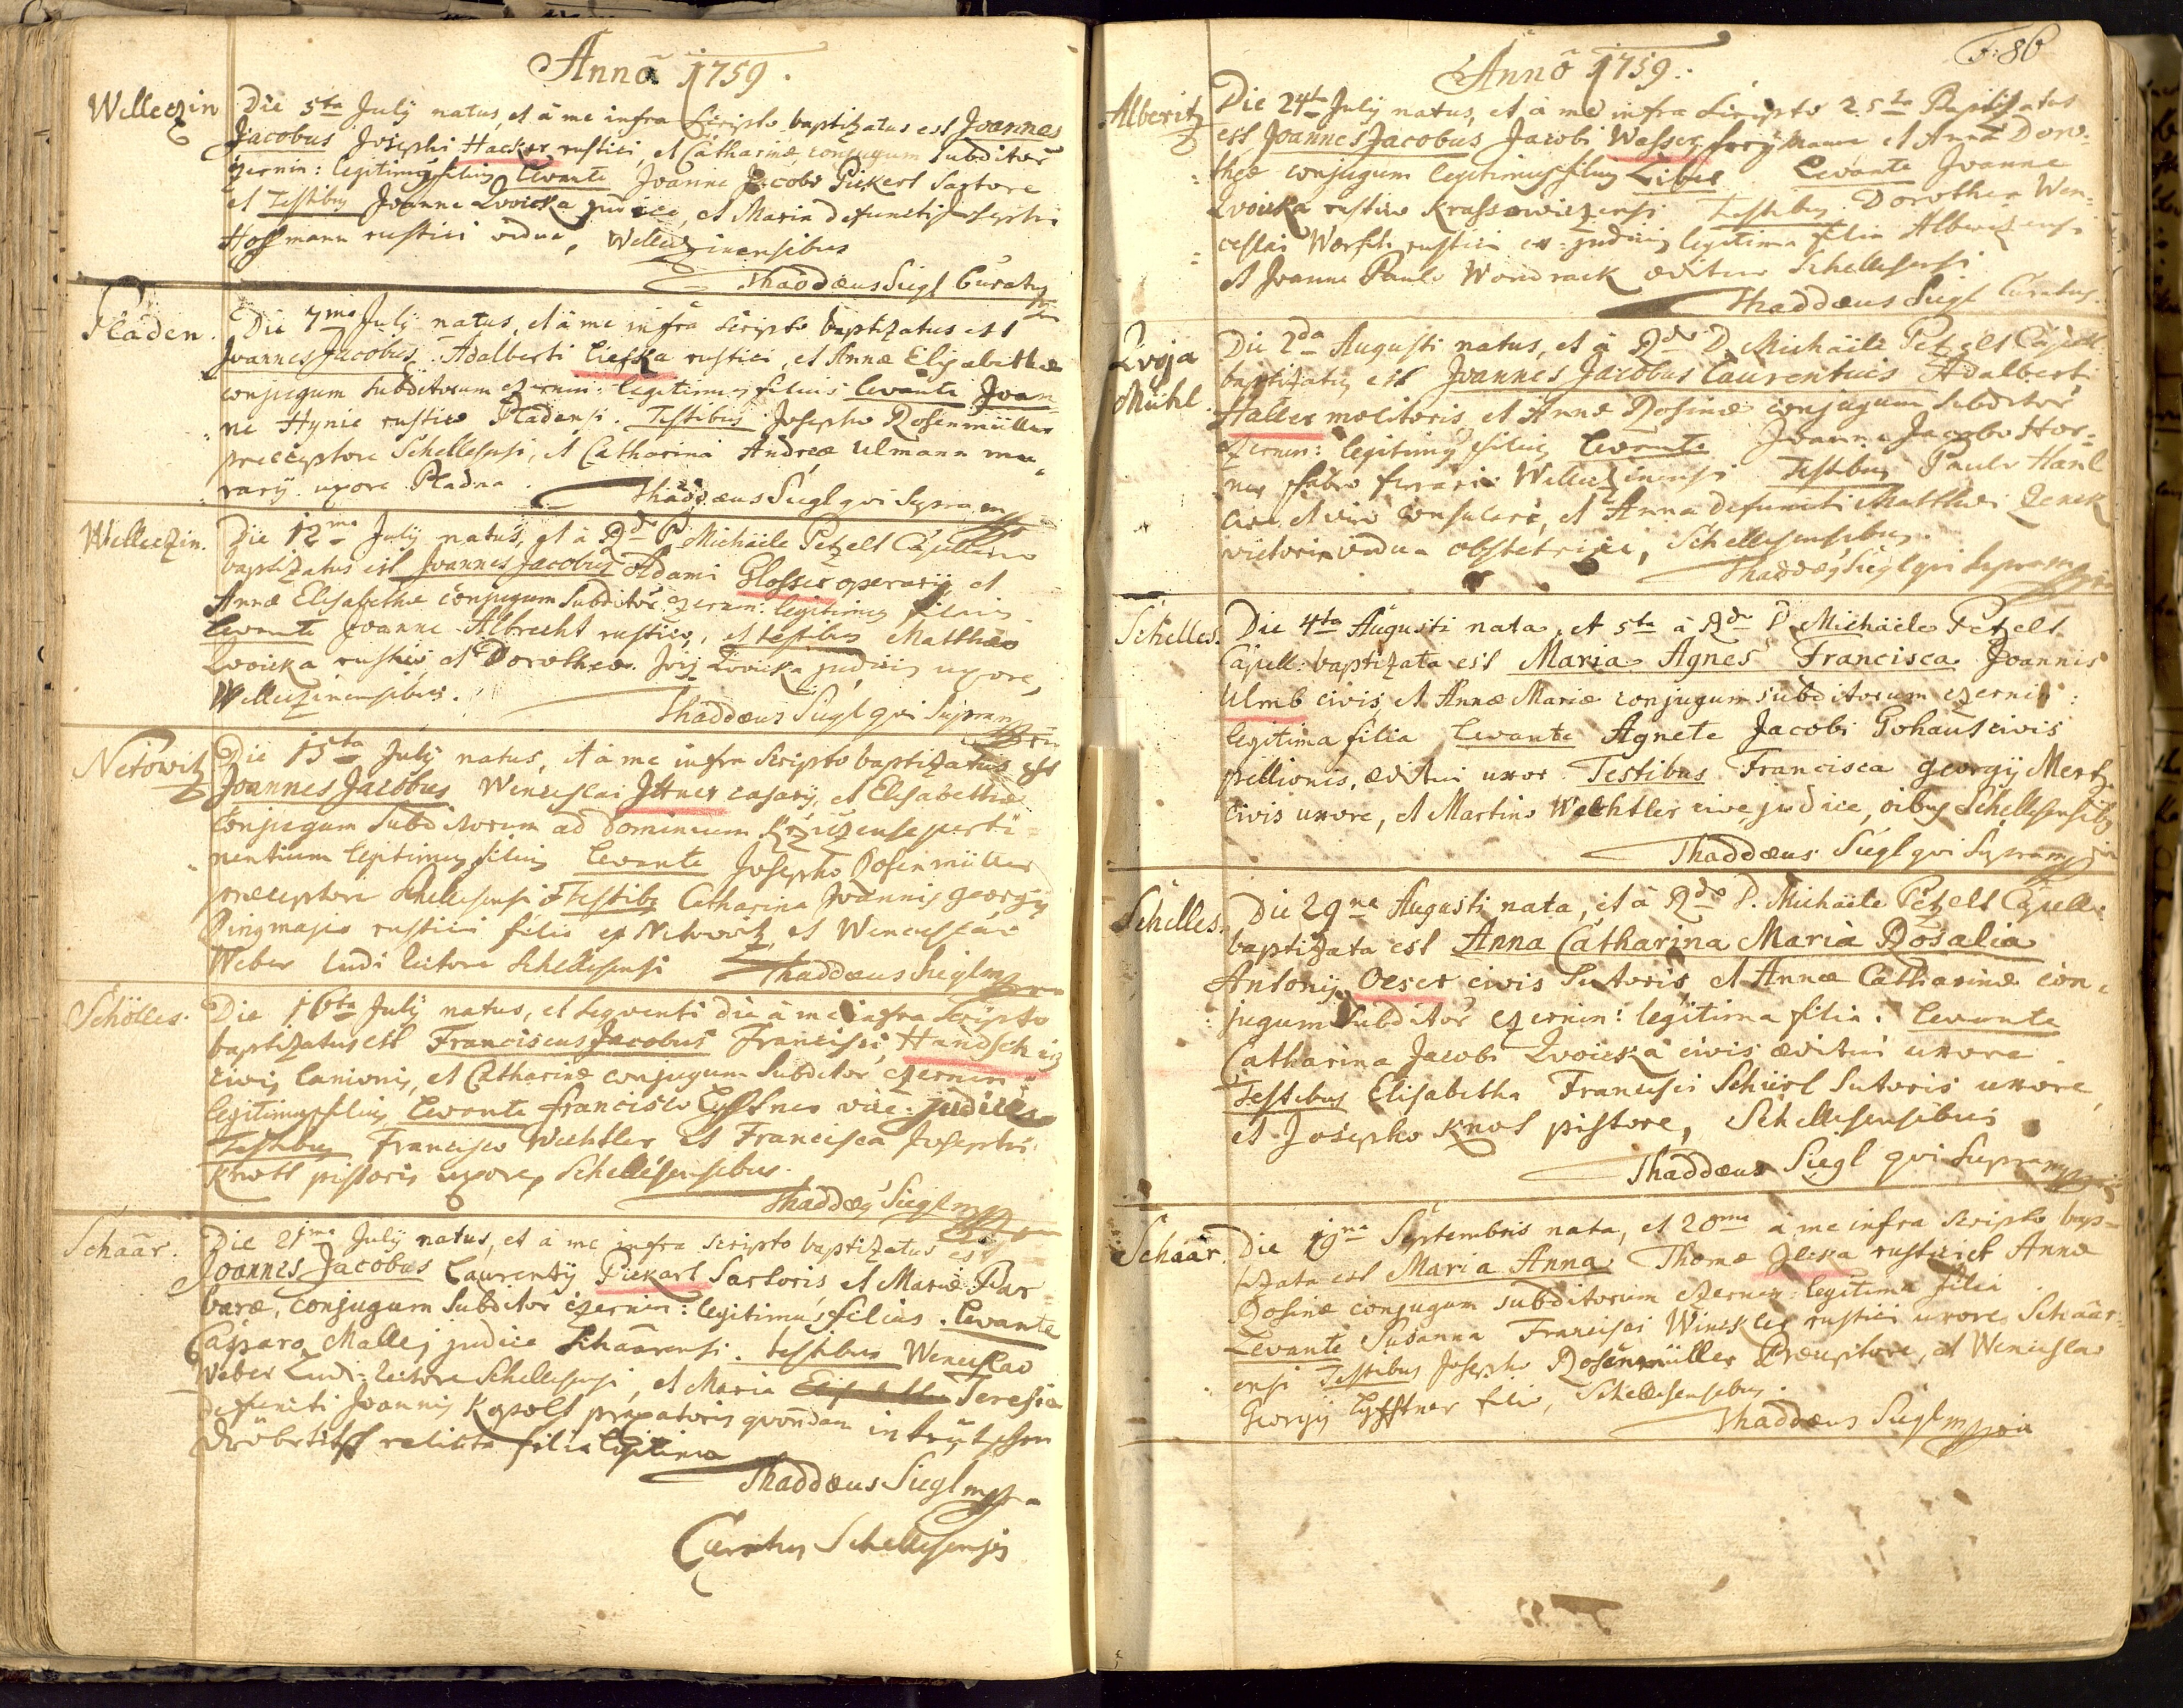 Anno 1759.
Welleczin
Die 5ta July natus, et à me infra scripto baptizatus est Joannes
Jacobus Josephi Hacker rustici, et Catharinæ conjugum Subditor
czernin: legitimus filius Levante Joanne Jacobo Pickert Sartore
et Testibus Joanne Zwoicka judice, et Maria defuncti Josephi
Hoffmann rustici vidua, Welleczinensibus
Thaddæus Siegl Curatus
Pladen.
Die 7ma July natus, et à me infra scripto baptizatus est
Joannes Jacobus Adalberti Lieska rustici, et Annæ Elisabethæ
conjugum subditorum czernin: legitimus filius Levante Joan-
ne Hynie rustico Pladensi. Testibus Josepho Rosenmüller
præceptore Schellesensi, et Catharina Andreæ Ulmann mu-
rarij uxore Pladna.
Thaddæus Siegl qui Supra
Welleczin.
Die 12ma July natus, et à Rdo P. Michäele Petzelt Capellano
baptizatus est Joannes Jacobus Adami Glosser operarij, et
Annæ Elisabethæ conjugum Subditor czernin: legitimus filius
Levante Joanne Albrecht rustico, et testibus Matthæo
Zwoicka rustico et Dorothea Zwoicka judicis uxore,
Welleczinensibus.
Thaddæus Siegl qui Supra
Netowitz
Die 15ta July natus, et à me infra scripto baptizatus est
Joannes Jacobus Wenceslai Ittner casarij, et Elisabethæ
conjugum Subditorum ad dominium pertï-
nentium legitimus filius Levante Josepho Rosenmüller
præceptore Schellesensi et Testibus Catharina Joannis Georgij
Ringmajer rustici filia ex Netowitz, et Wenceslao
Weber ludi rectore Schellesensi Thaddæus Siegl
Schölles.
Die 16ta July natus, et sequenti die à me infra scripto
baptizatus est Franciscus Jacobus Francisci Handschig
civis Lanionis, et Catharinæ conjugum Subditor czernin:
legitimus filius Levante Francisco Lyfftner vice: judice
Testibus Francisco Wechtler et Francisca Josephi
Knott pistoris uxore, Schellesensibus.
Thaddæus Siegl
Schaar.
Die 21ma July natus, et à me infra scripto baptizatus est
Joannes Jacobus Laurentij Pickart Sartoris, et Mariæ Bar
baræ, conjugum Subditor czernin: legitimus filius. Levante
Casparo Malley judice Schaarensi. testibus Wenceslao
Weber Ludi: rectore Schellesensi, et Maria Teresia
defuncti Joannis Kopolt quondam in
relicta filia legitima
Thaddæus Siegl
Curatus Schellesensis
Anno 1759.
F: 86
Alberitz
Die 24ta July natus, et à me infra scripto 25ta Baptizatus
est Joannes Jacobus Jacobi Wasser et Annæ Doro-
theæ conjugum legitimus filius Liber Levante Joanne
Zwoicka rustico Krassowiczensi Testibus Dorothea Wen-
ceslai Worsch rustici ex: judicis legitima filia Alberizensi
et Joanne Paulo Wondrack ædituo Schellesensi
Thaddæus Siegl Curatus.
Zwoja
Mühl.
Die 2da Augusti natus, et à Rdo D. Michäele Petzelt Capell:
baptizatus est Joannes Jacobus Laurentius Adalberti
Haller molitoris, et Annæ Rosinæ conjugum Subditor
czernin: legitimus filius Levante Joanne Jacobo Hor-
ner fabro ferrario Welleczinensi Testibus Paulo Hanl
cive et viro Consulare, et Anna defuncti Matthæi Zenck
vietoris vidua obstetrice, Schellesensibus.
Thaddæus Siegl qui Supra
Schelles.
Die 4ta Augusti nata, et 5ta à Rdo P. Michäele Petzelt
Capell: baptizata est Maria Agnes Francisca Joannis
Ulmb civis, et Annæ Mariæ conjugum subditorum czernin:
legitima filia Levante Agnete Jacobi Gohaus civis
pellionis, æditui uxor. Testibus Francisca Georgij Mertz
Civis uxore, et Martino Wechtler cive, judice, oibus Schellesensibus
Thaddæus Siegl qui Supra
Schelles.
Die 29na Augusti nata, et à Rdo P. Michäele Petzelt Capell:
baptizata est Anna Catharina Maria Rosalia
Antonij Oeser civis Sutoris, et Annæ Catharinæ con-
jugum Subditor czernin: legitima filia. Levante
Catharina Jacobi Zwoicka civis æditui uxore.
Testibus Elisabetha Francisci Schürl Sutoris uxore,
et Josepho Knot pistore, Schellesensibus
Thaddæus Siegl qui Supra
Schaar.
Die 19na Septembris nata, et 20ma à me infra scripto bap-
tizata est Maria Anna Thomæ Jeska rustici et Annæ
Rosinæ conjugum subditorum czernin: legitima filia
Levante Susanna Francisci Winckler rustici uxore, Schaar-
ensi Testibus Josepho Rosenmüller Præceptore, et Wenceslao
Georgij Lyfftner filio, Schellesensibus.
Thaddæus Siegl